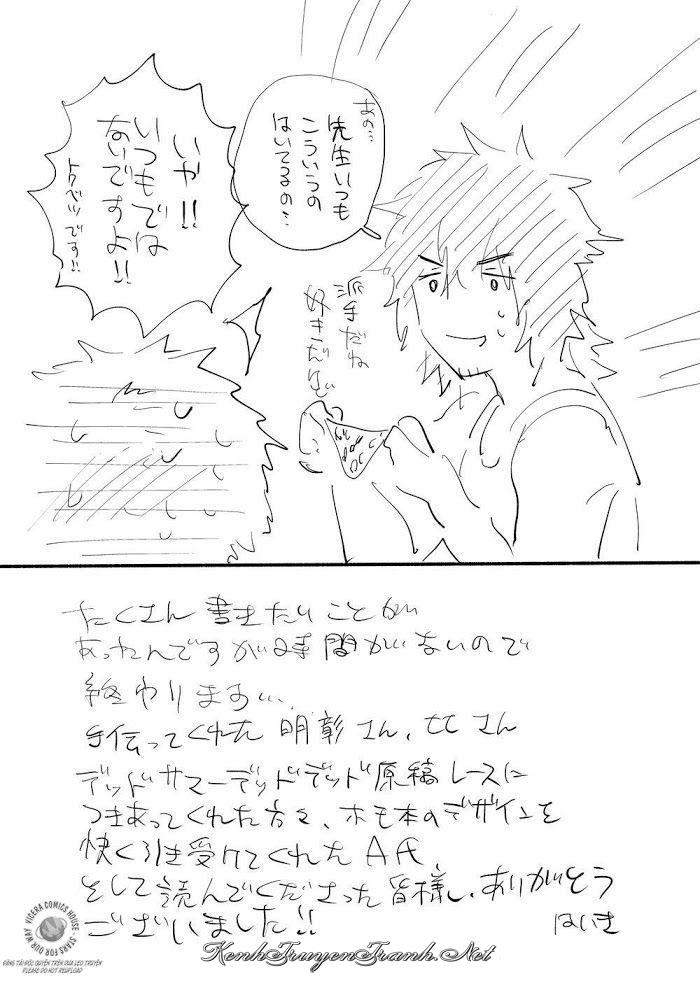 あの…
先生いつも
こういうの
はいてるの…
いや!!
いつもでは
ないですよ!!
トクベツです!!
派手だね
好きだぜ
たくさん書きたいことが
あったんですが時間がないので
終わります…
手伝ってくれた明彰さん、ヒヒさん
デッドサマーデッドデッド原稿レースに
つきあってくれた方々、ホモ本のデザインを
快く引き受けてくれたA氏、
そして読んでくださった皆様、ありがとう
ございました!!
はいき
VICERA COMICS HOUSE - STARS FOR OUR WAY
ĐĂNG TẢI ĐỘC QUYỀN TRÊN DƯA LEO TRUYỆN
PLEASE DO NOT REUPLOAD
KenhTruyenTranh.Net